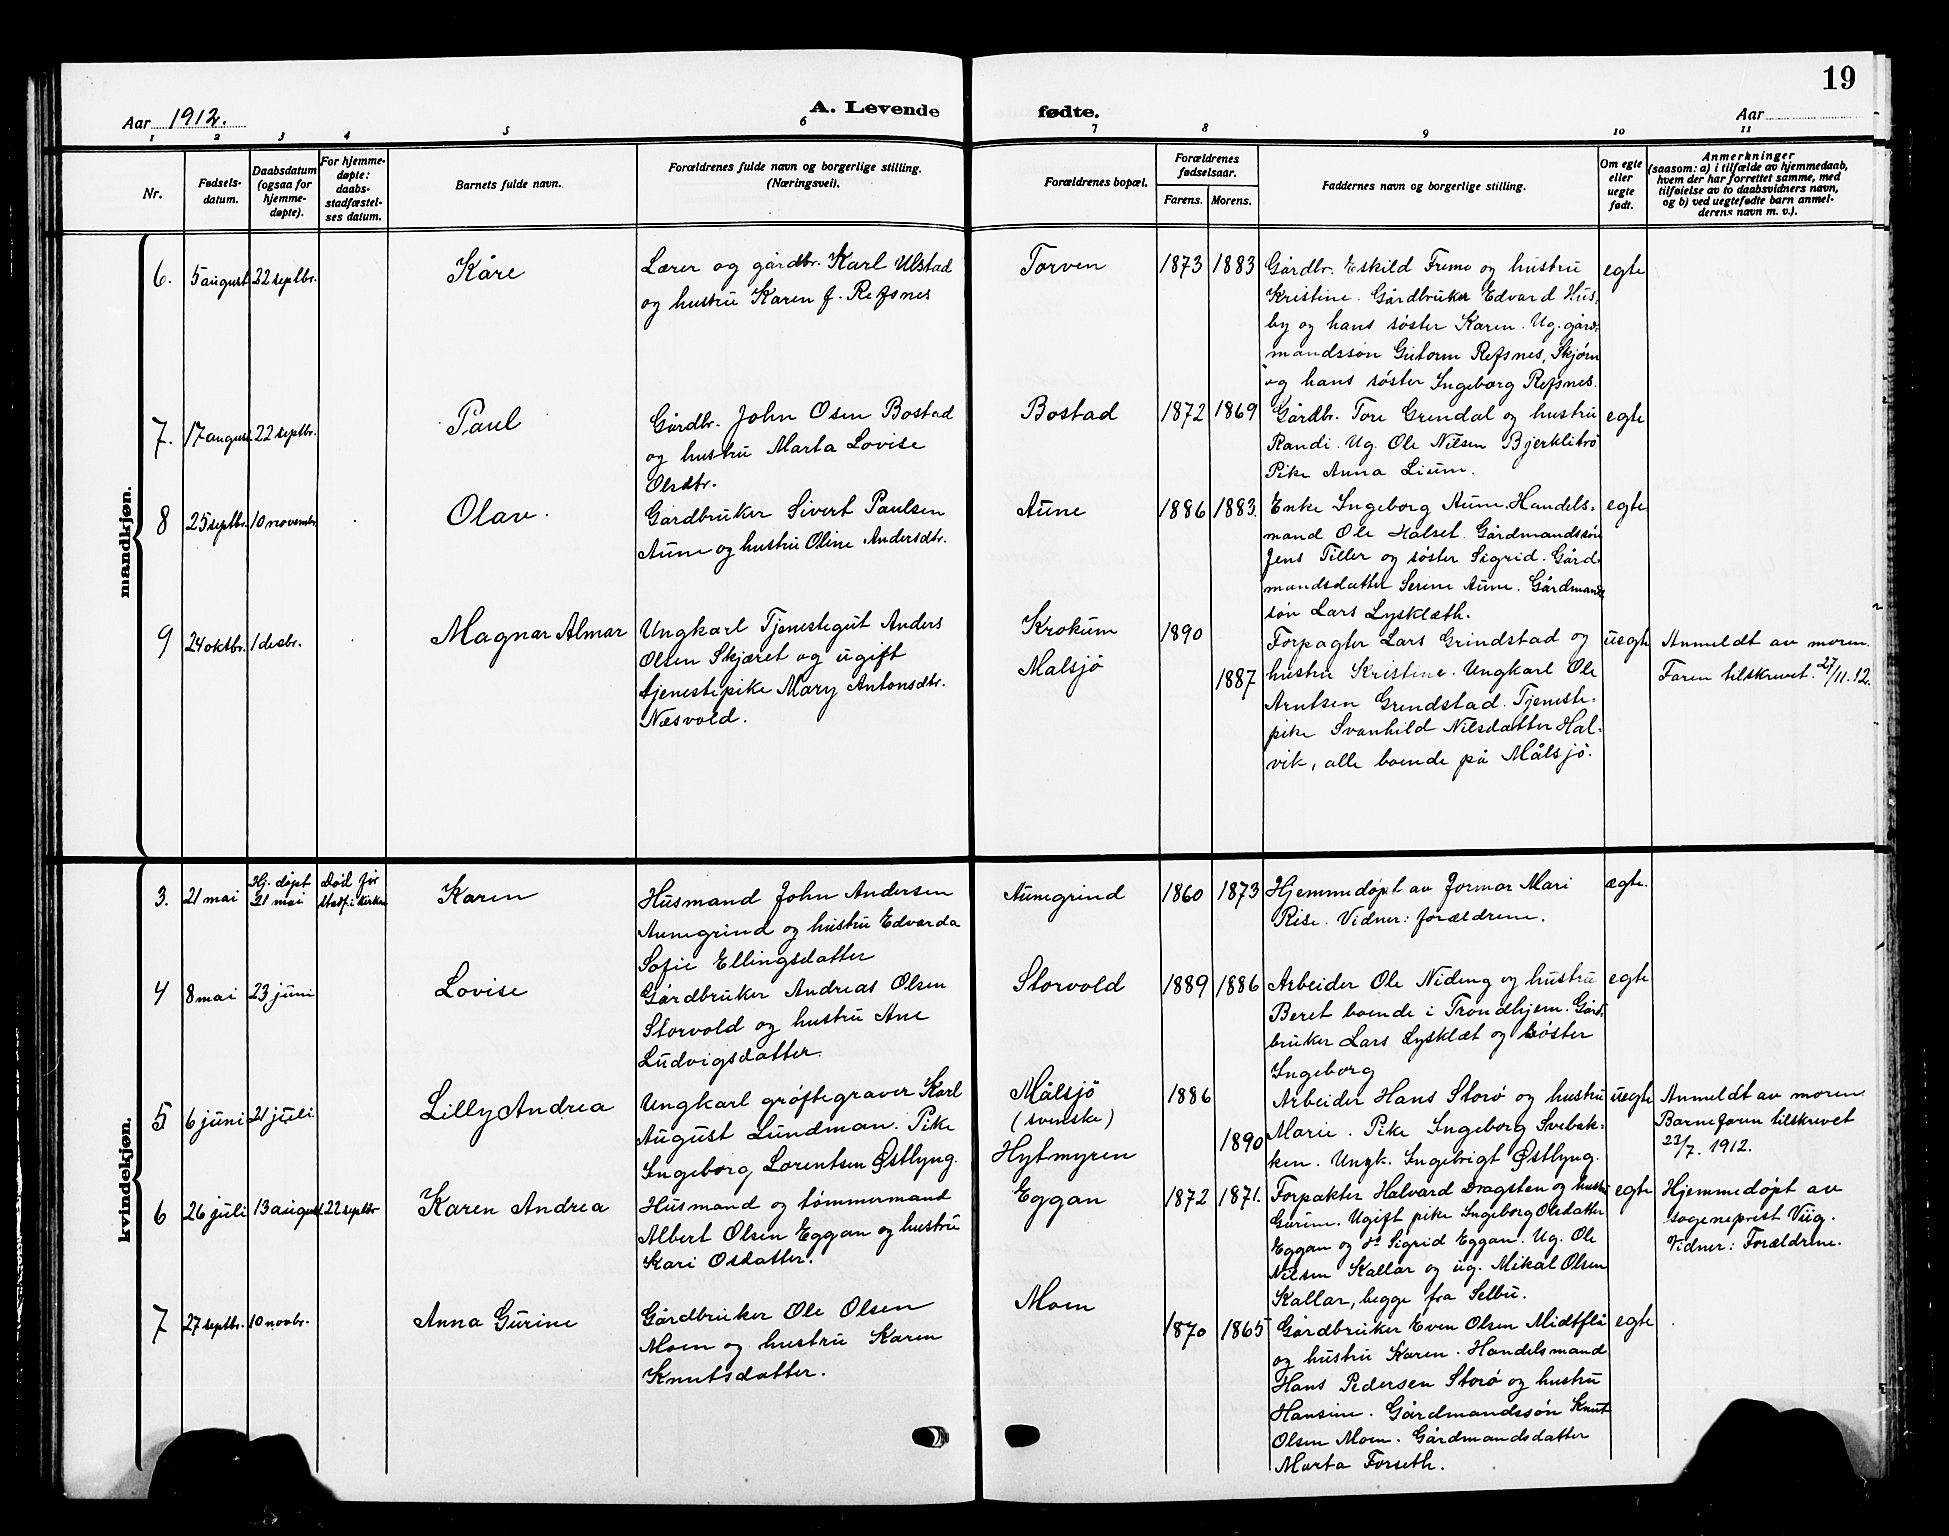 19
Aar 1912.
A. Levende
fødte.
Aar
1 2 3 4 5 6 7 8 9 10 11
Nr.
Fødsels-
datum.
Daabsdatum
(ogsaa for
hjemme-
døpte).
For hjemme-
døpte:
daabs-
stadfæstel-
ses datum.
Barnets fulde navn.
Forældrenes fulde navn og borgerlige stilling.
(Næringsvei).
Forældrenes bopæl.
Forældrenes
fødselsaar.
Farens. Morens.
Faddernes navn og borgerlige stilling.
Om egte
eller
uegte
født.
Anmerkninger
(saasom: a) i tilfælde av hjemmedaab,
hvem der har forrettet samme, med
tilføielse av to daabsvidners navn,
og b) ved uegtefødte barn anmel-
derens navn m. v.).
mandkjøn.
6. 5 august 22 septbr.
Kåre
Lærer og gårdbr. Karl Ulstad
og hustru Karen f. Refsnes
Torven
1873 1883
Gårdbr. Eskild Fremo og hustru
Kristine. Gårdbruker Edvard Hus-
by og hans søster Karen. Ug. gård-
mandssøn Gutorm Refsnes, Skjørn
og hans søster Ingeborg Refsnes.
egte
7. 17 august 22 septbr.
Paul
Gårdbr. John Osen Bostad
og hustru Marta Lovise
Olsdtr.
Bostad
1872 1869
Gårdbr. Tore Grendal og hustru
Randi. Ug. Ole Nilsen Bjerklitrø
Pike Anna Lium.
egte
8 25 septbr. 10 novembr.
Olav.
Gårdbruker Sivert Paulsen
Aune og hustru Oline Andersdtr.
Aune
1886 1883.
Enke Ingeborg Aune. Handels-
mand Ole Halset. Gårdmandssøn
Jens Tiller og søster Sigrid. Gård-
mandsdatter Serine Aune. Gårdmands-
søn Lars Lysklæth.
egte
9 24 oktbr. 1 desbr.
Magnar Almar
Ungkarl Tjenestegut Anders
Olsen Skjæret og ugift
tjenestepike Mary Antonsdtr.
Næsvold.
Krokum
Malsjö
1890
1887
Forpagter Lars Grindstad og
hustru Kristine. Ungkarl Ole
Arntsen Grendstad. Tjeneste-
pike Svanhild Nilsdatter Hal-
vik, alle boende på Målsjö.
uegte
Anmeldt av moren.
Faren tilskrevet 27/11.12.
kvindekjøn.
3. 21 mai
Hj. døpt
21 mai
Död før
stadf. i kirken
Karen
Husmand John Andersen
Aunegrind og hustru Edvarda
Sofie Ellingsdatter
Aunegrind
1860 1873
Hjemmedøpt av Jormor Mari
Rise. Vidner: forældrene.
ægte.
4 8 mai 23 juni
Lovise
Gårdbruker Andreas Olsen
Storvold og hustru Ane
Ludvigsdatter.
Storvold
1889 1886
Arbeider Ole Nideng og hustru
Beret boende i Trondhjem. Gård-
bruker Lars Lysklæt og søster
Ingeborg
egte
5 6 juni 21 juli
Lilly Andrea
Ungkarl grøftegraver Karl
August Lundman. Pike
Ingeborg Lorentsen Østlyng.
Målsjö
(svenske)
Hytmyren
1886
1890
Arbeider Hans Storø og hustru
Marie. Pike Ingeborg Svebak-
ken. Ungk. Ingebrigt Østlyng.
uegte
Anmeldt av moren.
Barnefaren tilskrevet
23/7. 1912.
6 26 juli 13 august 22 septbr
Karen Andrea
Husmand og tømmermand
Albert Olsen Eggan og hustru
Kari Osdatter.
Eggan
1872 1871.
Forpakter Halvard Dragsten og hustru
Gurine. Ugift pike Ingeborg Olsdatter
Eggan og do Sigrid Eggan. Ug. Ole
Nilsen Kallar og ug. Mikal Olsen
Kallar, begge fra Selbu.
egte
Hjemmedøpt av
sogneprest Viig.
Vidner: Forældrene.
7 27 septbr. 10 novbr.
Anna Gurine
Gårdbruker Ole Olsen
Moen og hustru Karen
Knutsdatter.
Moen
1870 1865
Gårdbruker Even Olsen Midtfla
og hustru Karen. Handelsmand
Hans Pedersen Storø og hustru
Hansine. Gårdmandssön Knut
Olsen Moen. Gårdmandsdatter
Marta Forseth.
egte